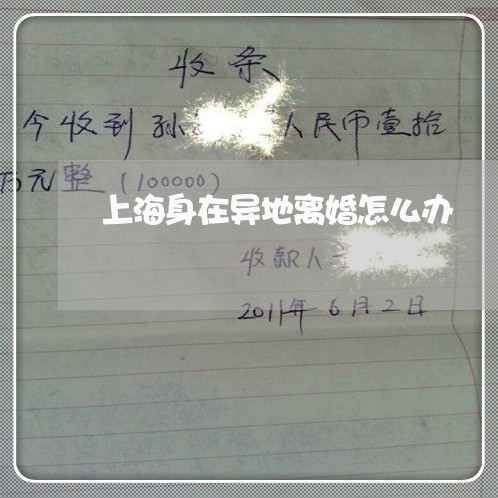 收条
今收到孙 人民币壹拾
万元整(100000)
上海身在异地离婚怎么办
收款人
2011年6月2日